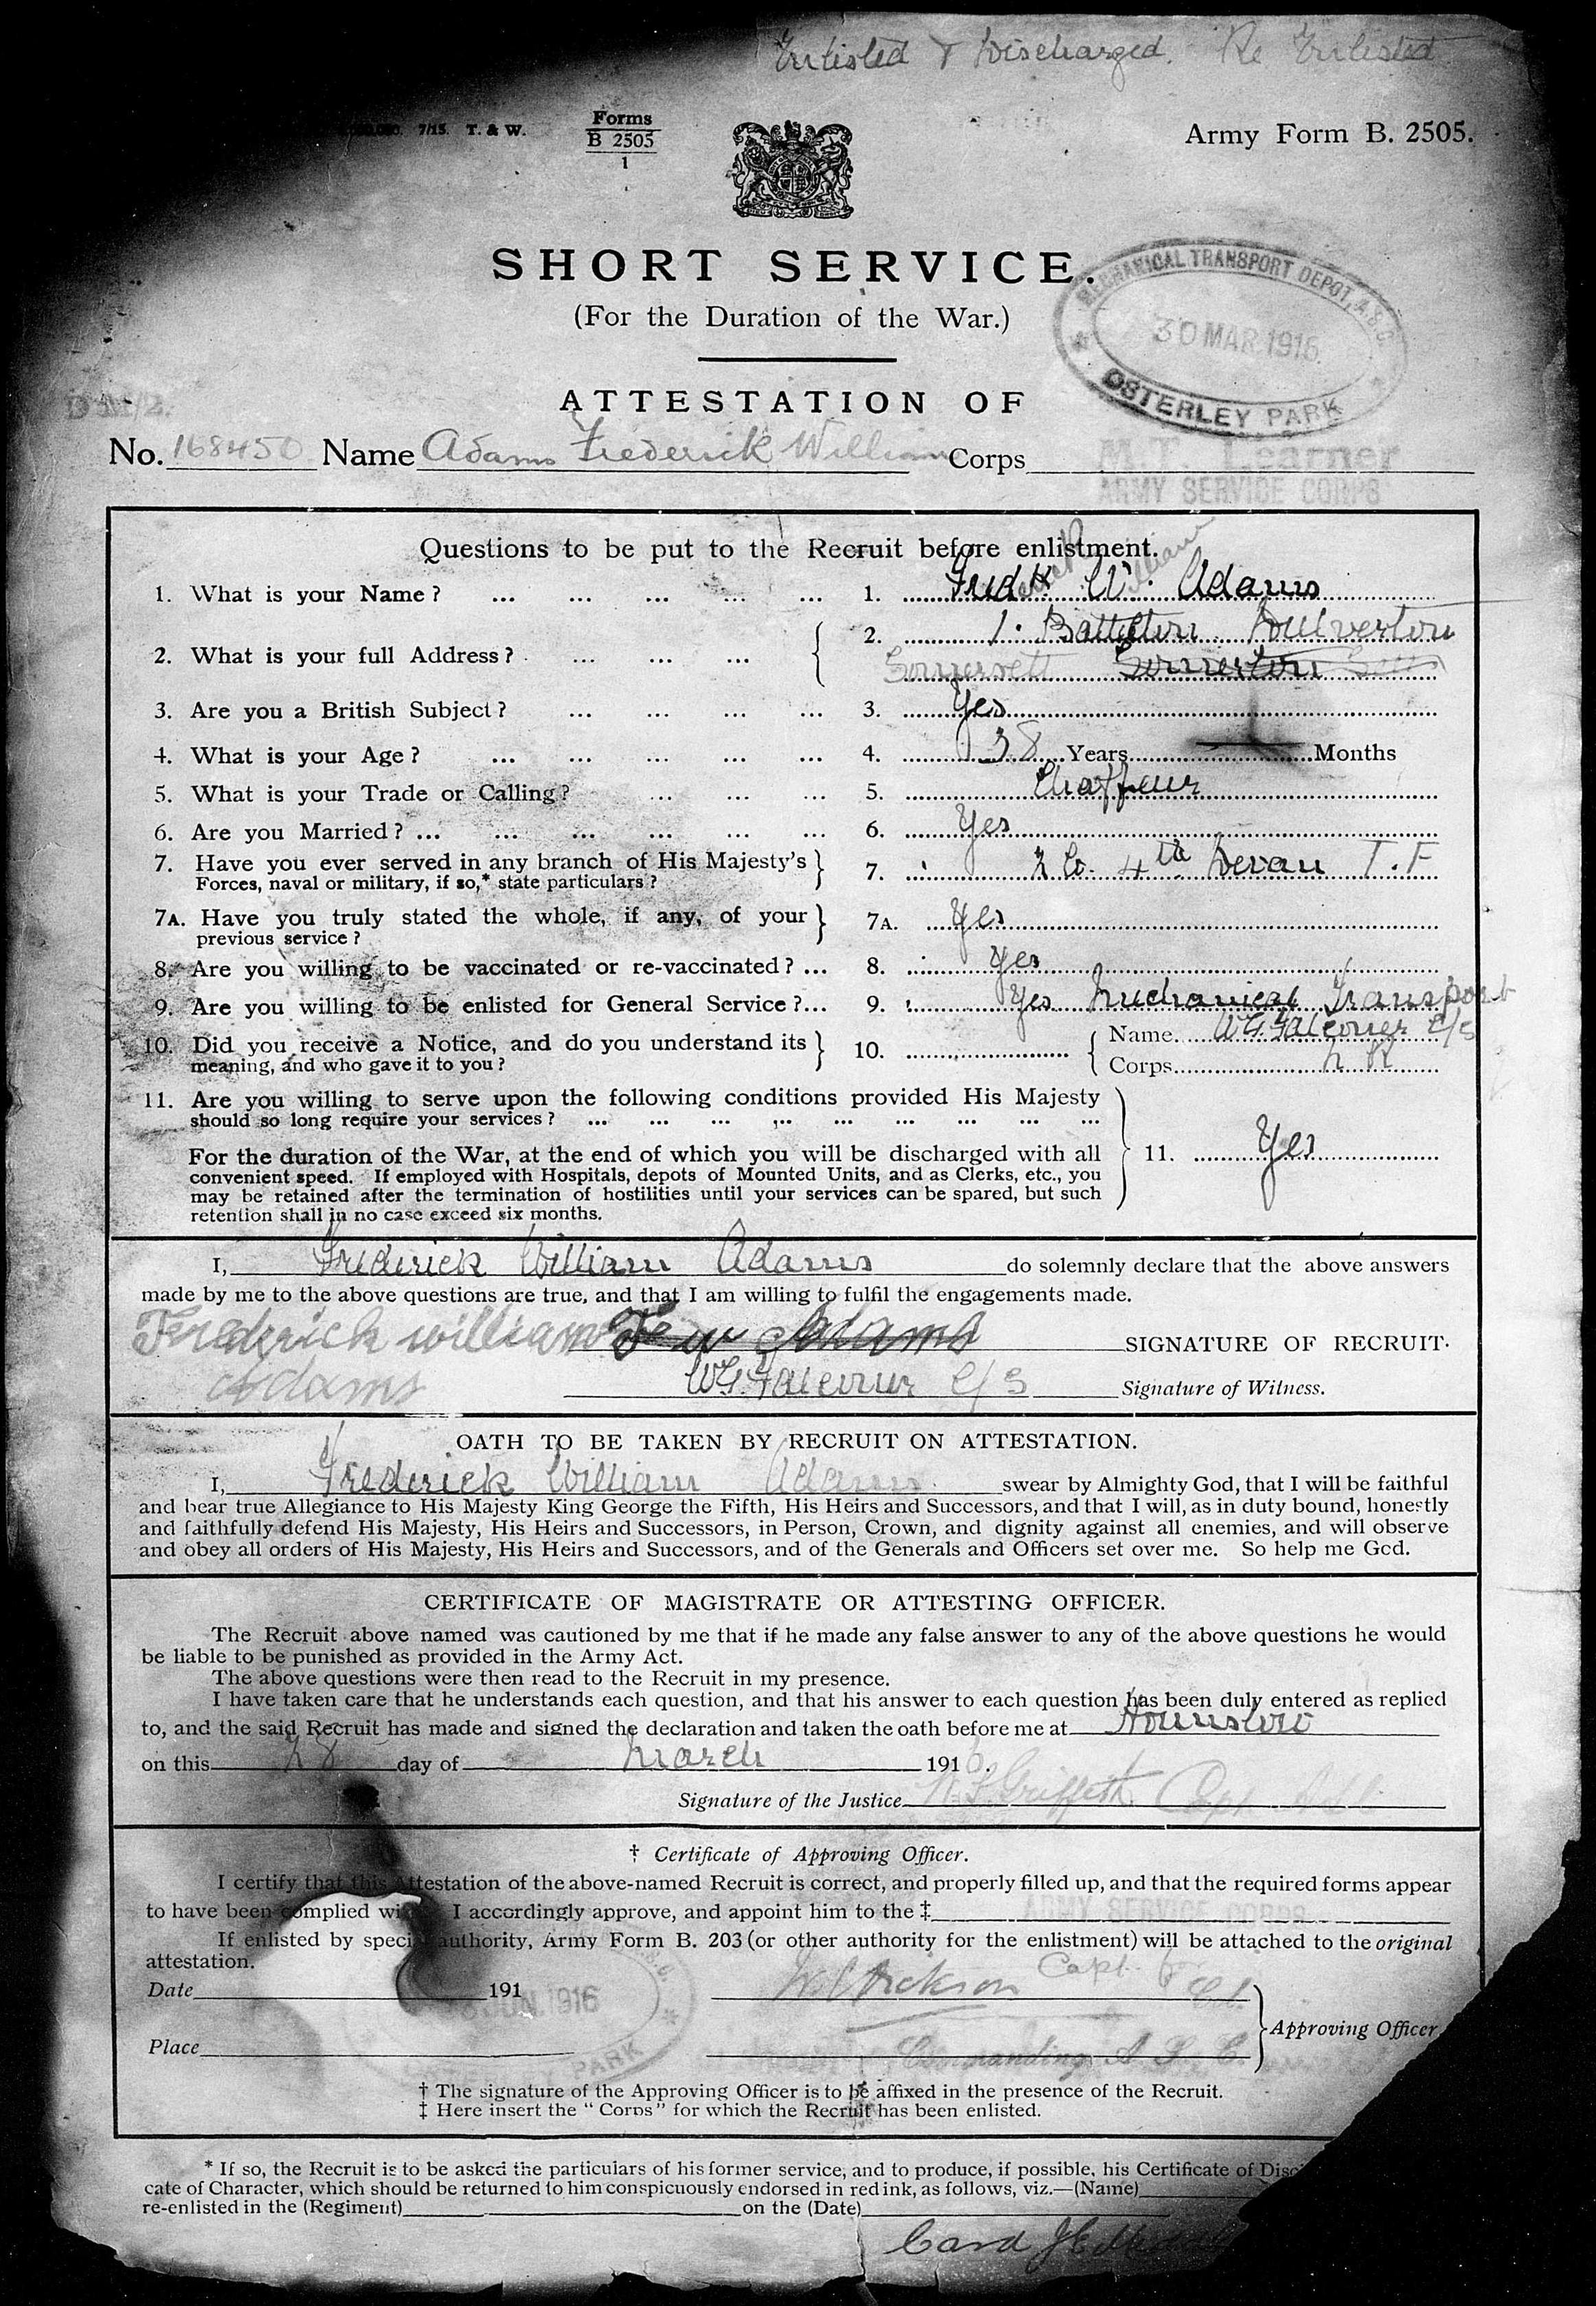 Enlisted & Discharged. Re Enlisted
7/15. T. & W.
Forms
B 2505
1
Army Form B. 2505.
SHORT SERVICE.
(For the Duration of the War.)
MECHANICAL TRANSPORT DEPOT, A.S.C.
30 MAR 1916
OSTERLEY PARK
ATTESTATION OF
No. 168450 Name Adams Frederick William Corps M.T. Learner
ARMY SERVICE CORPS
Questions to be put to the Recruit before enlistment.
1. What is your Name? ... ... ... ... ... 1. Fredk W. Adams
2. What is your full Address? ... ... ... 2. 1. Dulverton
Somersett Somerton
3. Are you a British Subject? ... ... ... ... 3. Yes
4. What is your Age? ... ... ... ... ... 4. 38 Years Months
5. What is your Trade or Calling? ... ... ... 5. Chaffeur
6. Are you Married? ... ... ... ... ... ... 6. Yes
7. Have you ever served in any branch of His Majesty's
Forces, naval or military, if so,* state particulars? 7. 4th Devon T.F
7A. Have you truly stated the whole, if any, of your
previous service? 7A. Yes
8. Are you willing to be vaccinated or re-vaccinated? ... 8. Yes
9. Are you willing to be enlisted for General Service? ... 9. Yes Mechanical Transport
10. Did you receive a Notice, and do you understand its
meaning, and who gave it to you? 10. Name W.G. Falconer C/S
Corps
11. Are you willing to serve upon the following conditions provided His Majesty
should so long require your services? ... ... ... ... ... ... ... ... ...
For the duration of the War, at the end of which you will be discharged with all
convenient speed. If employed with Hospitals, depots of Mounted Units, and as Clerks, etc., you
may be retained after the termination of hostilities until your services can be spared, but such
retention shall in no case exceed six months. 11. Yes
I, Frederick William Adams do solemnly declare that the above answers
made by me to the above questions are true, and that I am willing to fulfil the engagements made.
Frederick william F w Adams SIGNATURE OF RECRUIT.
Adams W.G. Falconer C/S Signature of Witness.
OATH TO BE TAKEN BY RECRUIT ON ATTESTATION.
I, Frederick William Adams swear by Almighty God, that I will be faithful
and bear true Allegiance to His Majesty King George the Fifth, His Heirs and Successors, and that I will, as in duty bound, honestly
and faithfully defend His Majesty, His Heirs and Successors, in Person, Crown, and dignity against all enemies, and will observe
and obey all orders of His Majesty, His Heirs and Successors, and of the Generals and Officers set over me. So help me God.
CERTIFICATE OF MAGISTRATE OR ATTESTING OFFICER.
The Recruit above named was cautioned by me that if he made any false answer to any of the above questions he would
be liable to be punished as provided in the Army Act.
The above questions were then read to the Recruit in my presence.
I have taken care that he understands each question, and that his answer to each question has been duly entered as replied
to, and the said Recruit has made and signed the declaration and taken the oath before me at Hounslow
on this 28 day of March 1916.
Signature of the Justice Griffith Capt
† Certificate of Approving Officer.
I certify that this Attestation of the above-named Recruit is correct, and properly filled up, and that the required forms appear
to have been complied wi I accordingly approve, and appoint him to the ‡ ARMY SERVICE CORPS
If enlisted by speci authority, Army Form B. 203 (or other authority for the enlistment) will be attached to the original
attestation.
Date 191 Capt. for
JUN 1916
Approving Officer
Place PARK Commanding A.S.C.
† The signature of the Approving Officer is to be affixed in the presence of the Recruit.
‡ Here insert the "Corps" for which the Recruit has been enlisted.
* If so, the Recruit is to be asked the particulars of his former service, and to produce, if possible, his Certificate of Disc
cate of Character, which should be returned to him conspicuously endorsed in red ink, as follows, viz.—(Name)
re-enlisted in the (Regiment) on the (Date)
Card